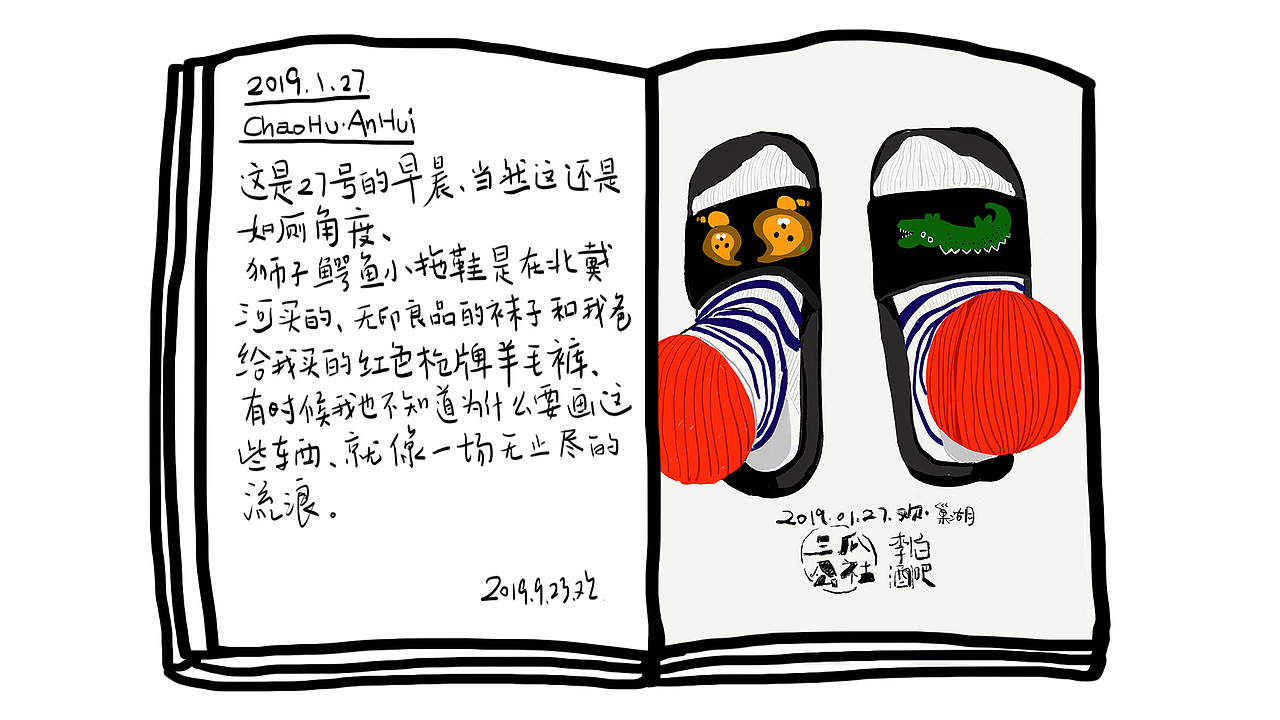 2019.1.27.
ChaoHu·AnHui
这是27号的早晨、当然这还是
如厕角度、
狮子鳄鱼小拖鞋是在北戴
河买的、无印良品的袜子和我爸
给我买的红色枪牌羊毛裤、
有时候我也不知道为什么要画这
些东西、就像一场无止尽的
流浪。
2019.9.23.欢
2019.01.27.欢·巢湖
三瓜
公社
李白
酒吧